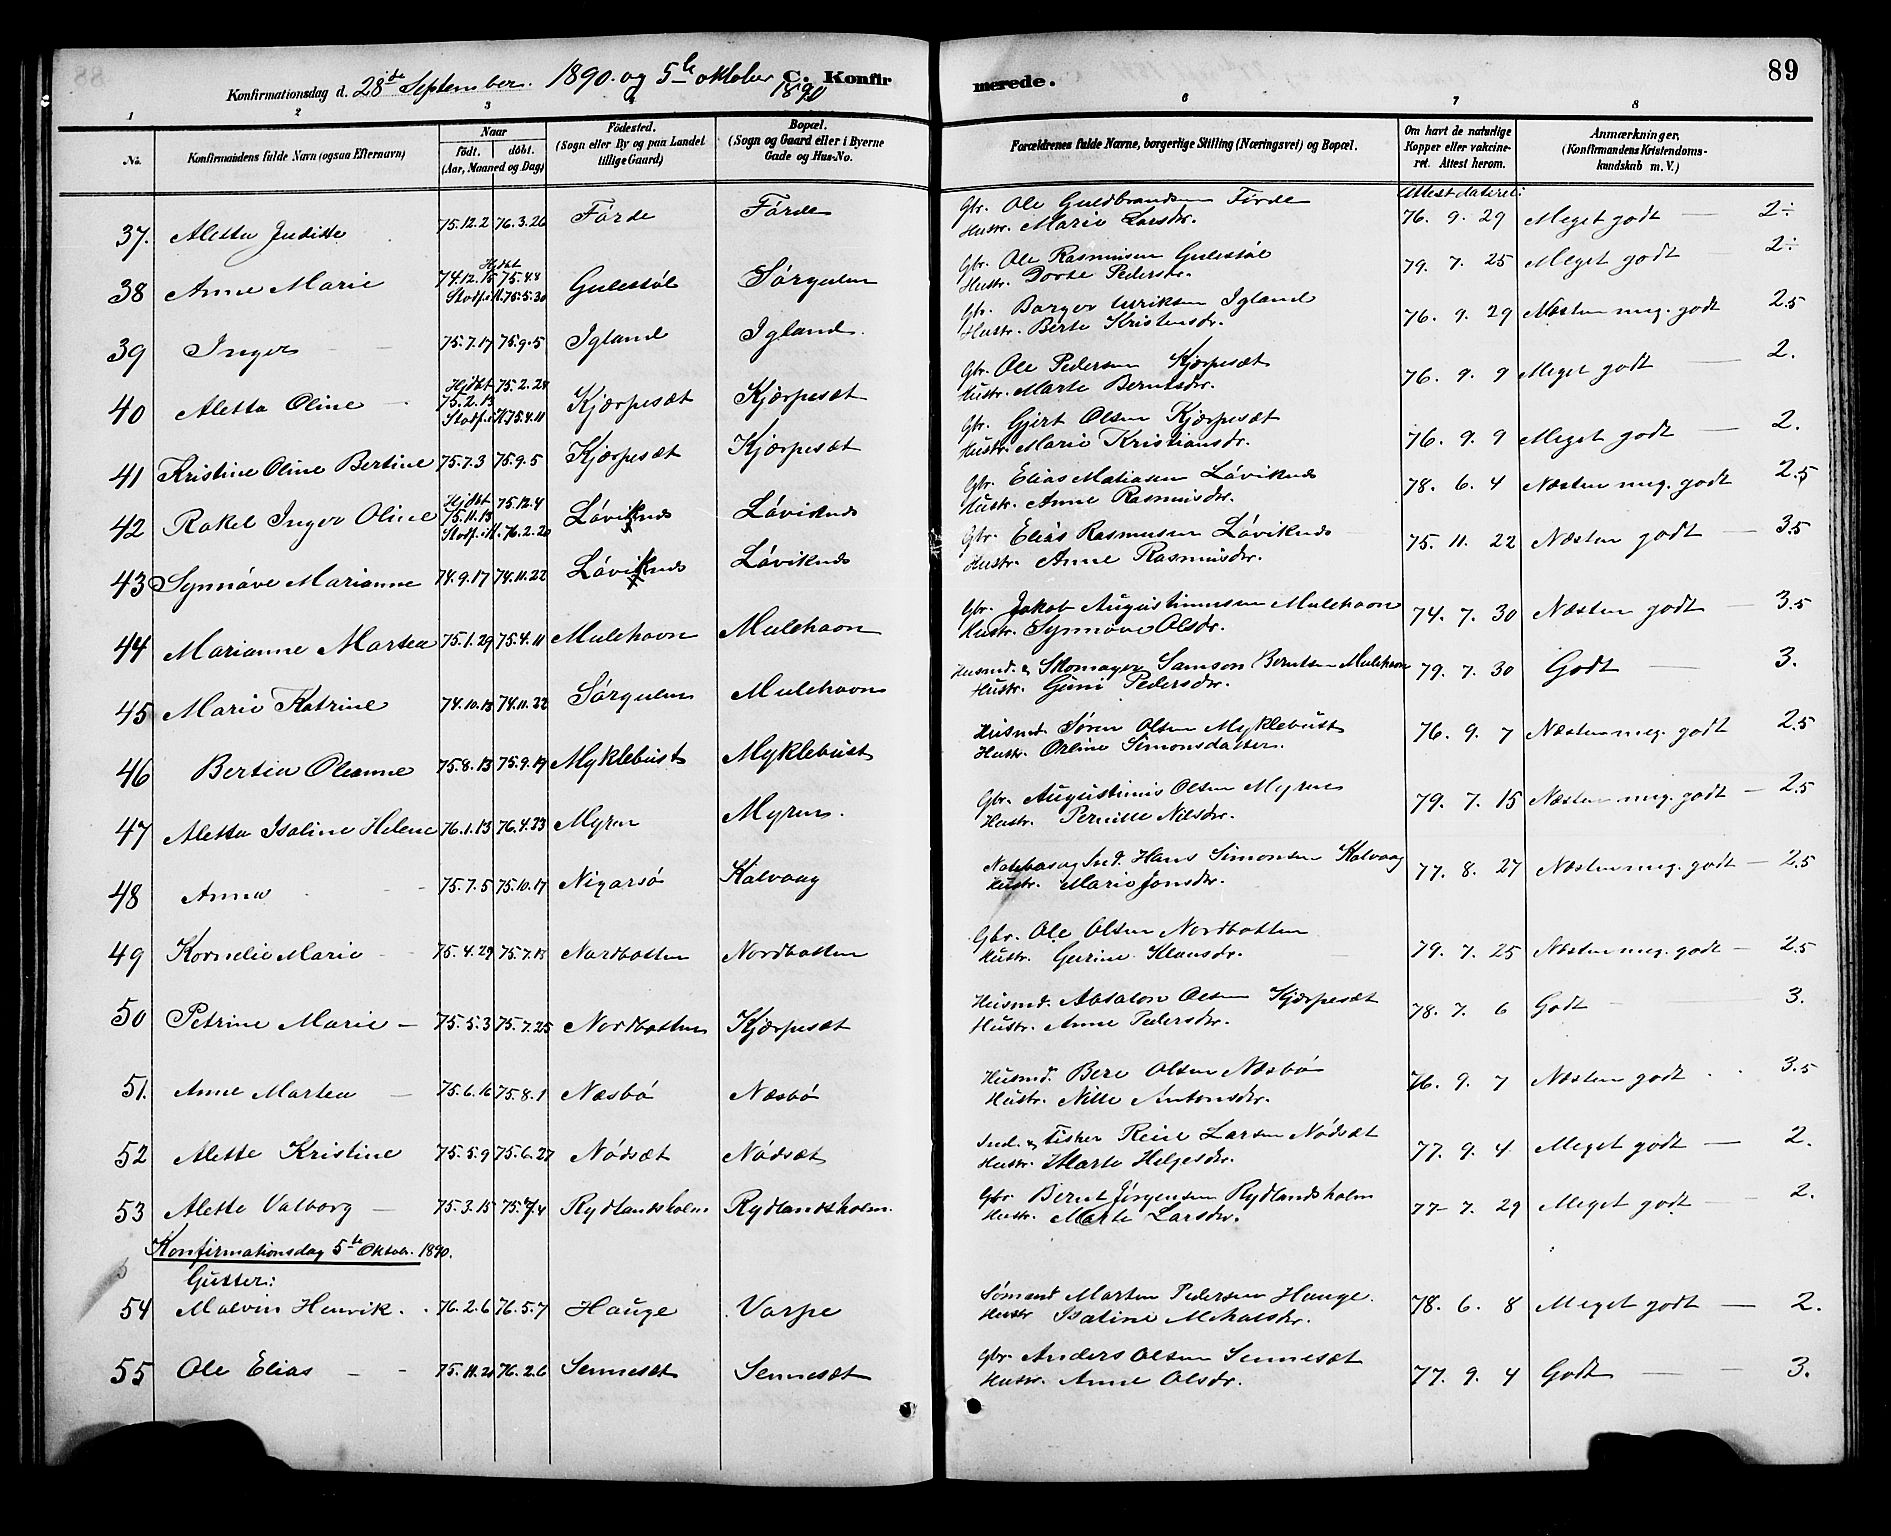 89
Konfirmationsdag d. 28de September. 1890. og 5te oktober 1890 C. Konfirmerede.
1 2 3 4 6 7 8
No. Konfirmandens fulde Navn (ogsaa Efternavn) Naar født. døbt. (Aar, Maaned og Dag) Födested. (Sogn eller By og paa Landet tillige Gaard) Bopæl. (Sogn og Gaard eller i Byerne Gade og Hus-No. Forældrenes fulde Navne, borgerlige Stilling (Næringsvei) og Bopæl. Om havt de naturlige Kopper eller vakcineret. Attest herom. Anmærkninger. (Konfirmandens Kristendomskundskab m. V.)
Attest dateret:
37. Aletta Juditte 75.12.2 76.3.26 Förde Förde Gbr. Ole Guldbrandsen Förde 76. 9. 29 Meget godt — 2÷
Hustr. Marie Larsdr.
38 Anne Marie 74.12.15 Hjdbt 75.4.4 Stadf. i K. 75.5.30 Gulestöl Sörgulen Gbr. Ole Rasmusen Gulestöl 79. 7. 25 Meget godt — 2÷
Hustr. Dorte Pedersdr.
39 Inger — 75.7.17 75.9.5 Igland Igland. Gbr. Barger Ulriksen Igland 76. 9. 29 Næsten meg. godt 2.5
Hustr. Berte Kristensdr.
40 Aletta Oline — 75.2.13 Hjdbt 75.2.28 Stadf. i K. 75.4.11 Kjærpesæt Kjærpesæt Gbr. Ole Pedersen Kjærpesæt 76. 9. 9 Meget godt — 2.
Hustr. Marte Berntsdr.
41 Kristine Oline Bertine 75.7.3 75.9.5 Kjærpesæt Kjærpesæt Gbr. Gjert Olsen Kjærpesæt 76. 9. 9 Meget godt — 2.
Hustr. Marie Kristiansdr.
42 Rakel Inger Oline 75.11.13 Hjdbt 75.12.4 Stadf. i K. 76.2.20 Löviknes Löviknes Gbr. Elias Matiasen Löviknes 78. 6. 4 Næsten meg. godt 2.5
Hustr. Anne Rasmusdr.
43 Synnöve Marianne 74.9.17 74.11.22 Löviknes Löviknes Gbr. Elias Rasmusen Löviknes 75. 11. 22 Næsten godt — 3.5
Hustr. Anne Rasmusdr.
44 Marianne Martea 75.1.29 75.4.11 Mulehavn Mulehavn Gbr. Jakob Augustinusen Mulehavn 74. 7. 30 Næsten godt — 3.5
Hustr. Synnöve Olsdr.
45 Marie Katrine 74.10.13 74.11.22 Sörgulen Mulehavn Husmd. & Skomager Samson Berntsen Mulehavn 79. 7. 30 Godt — 3.
Hustr. Guni Pedersdr.
46 Bertea Oleanne 75.8.13 75.9.19 Myklebust Myklebust Husmd. Sören Olsen Myklebust 76. 9. 7 Næsten meg. godt 2.5
Hustr. Oline Simonsdatter.
47 Aletta Isaline Helene 76.1.13 76.4.23 Myren Myren. Gbr. Augustinus Olsen Myren 79. 7. 15 Næsten meg. godt — 2.5
Hustr. Pernille Nilsdr.
48 Anna 75.7.5 75.10.17 Nigarsö Kalvaag Hans Simonsen Kalvaag 77. 8. 27 Næsten meg. godt — 2.5
Hustr. Marie Jonsdr.
49 Kornelie Marie 75.4.29 75.7.13 Nordbotten Nordbotten Gbr. Ole Olsen Nordbotten 79. 7. 25 Næsten meg. godt — 2.5
Hustr. Gurine Klausdr.
50 Petrine Marie — 75.5.3 75.7.25 Nordbotten Kjærpesæt Husmd. Absalon Olsen Kjærpesæt 78. 7. 6 Godt — 3.
Hustr. Anne Pedersdr.
51. Anne Martea — 75.6.16 75.8.1 Næsbö Næsbö Husmd. Bere Olsen Næsbö 76. 9. 7 Næsten godt . . 3.5
Hustr. Nille Antonsdr.
52 Alette Kristine 75.5.9 75.6.27 Nödsæt Nödsæt Ind. & Fisker Reier Larsen Nödsæt 77. 9. 4 Meget godt — 2.
Hustr. Marte Helgesdr.
53 Alette Valborg — 75.3.15 75.7.4 Rydlandsholm Rydlandsholm. Gbr Bernt Jörgensen Rydlandsholm 77. 7. 29 Meget godt — 2.
Hustr. Marte Larsdr.
Konfirmationsdag 5te Oktobr. 1890.
Gutter:
54 Malvin Henrik. 76.2.6 76.5.7 Hauge Varpe Sömand Marten Pedersen Hauge. 78. 6. 8 Meget godt — 2.
Hustr Isaline Mikalsdr.
55 Ole Elias — 75.11.21 76.2.6 Sennesæt Sennesæt Gbr. Anders Olsen Sennesæt 77. 9. 4 Godt — 3.
Hustr. Anne Olsdr.